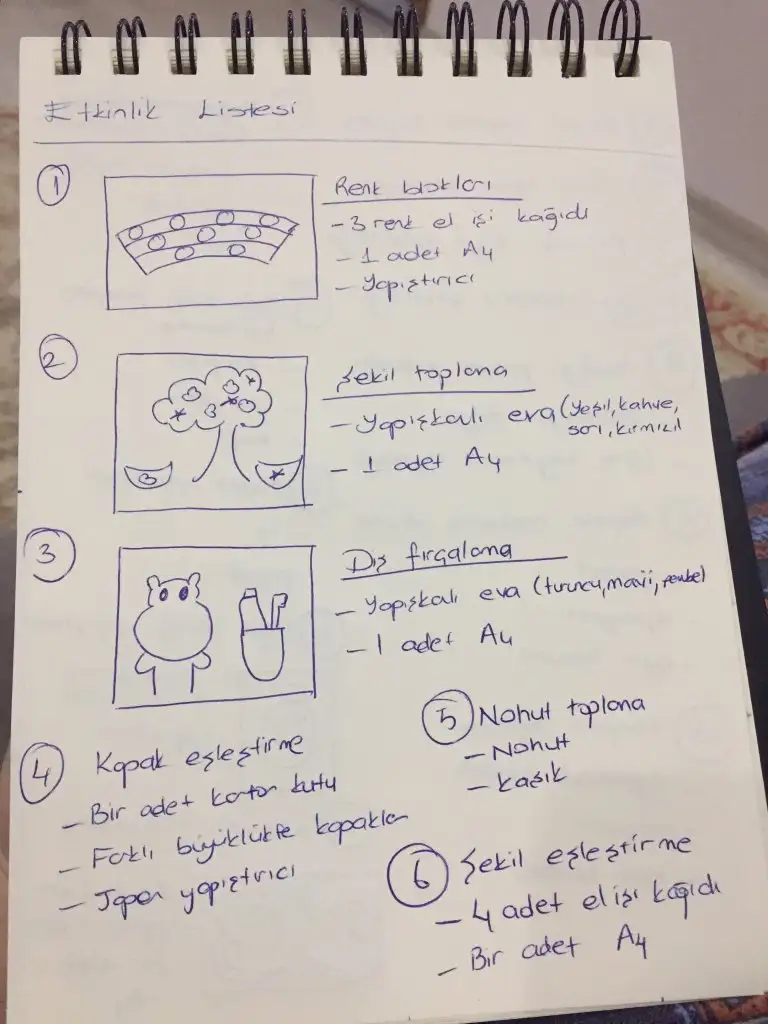 Etkinlik Listesi
1
Renk blokları
- 3 renk el işi kağıdı
- 1 adet A4
- Yapıştırıcı
2
Şekil toplama
- Yapışkalı eva (yeşil, kahve,
sarı, kırmızı)
- 1 adet A4
3
Diş fırçalama
- Yapışkalı eva (turuncu, mavi, pembe)
- 1 adet A4
4 Kapak eşleştirme
- Bir adet karton kutu
- Farklı büyüklükte kapaklar
- Japon yapıştırıcı
5 Nohut toplama
- Nohut
- Kaşık
6 Şekil eşleştirme
- 4 adet el işi kağıdı
- Bir adet A4